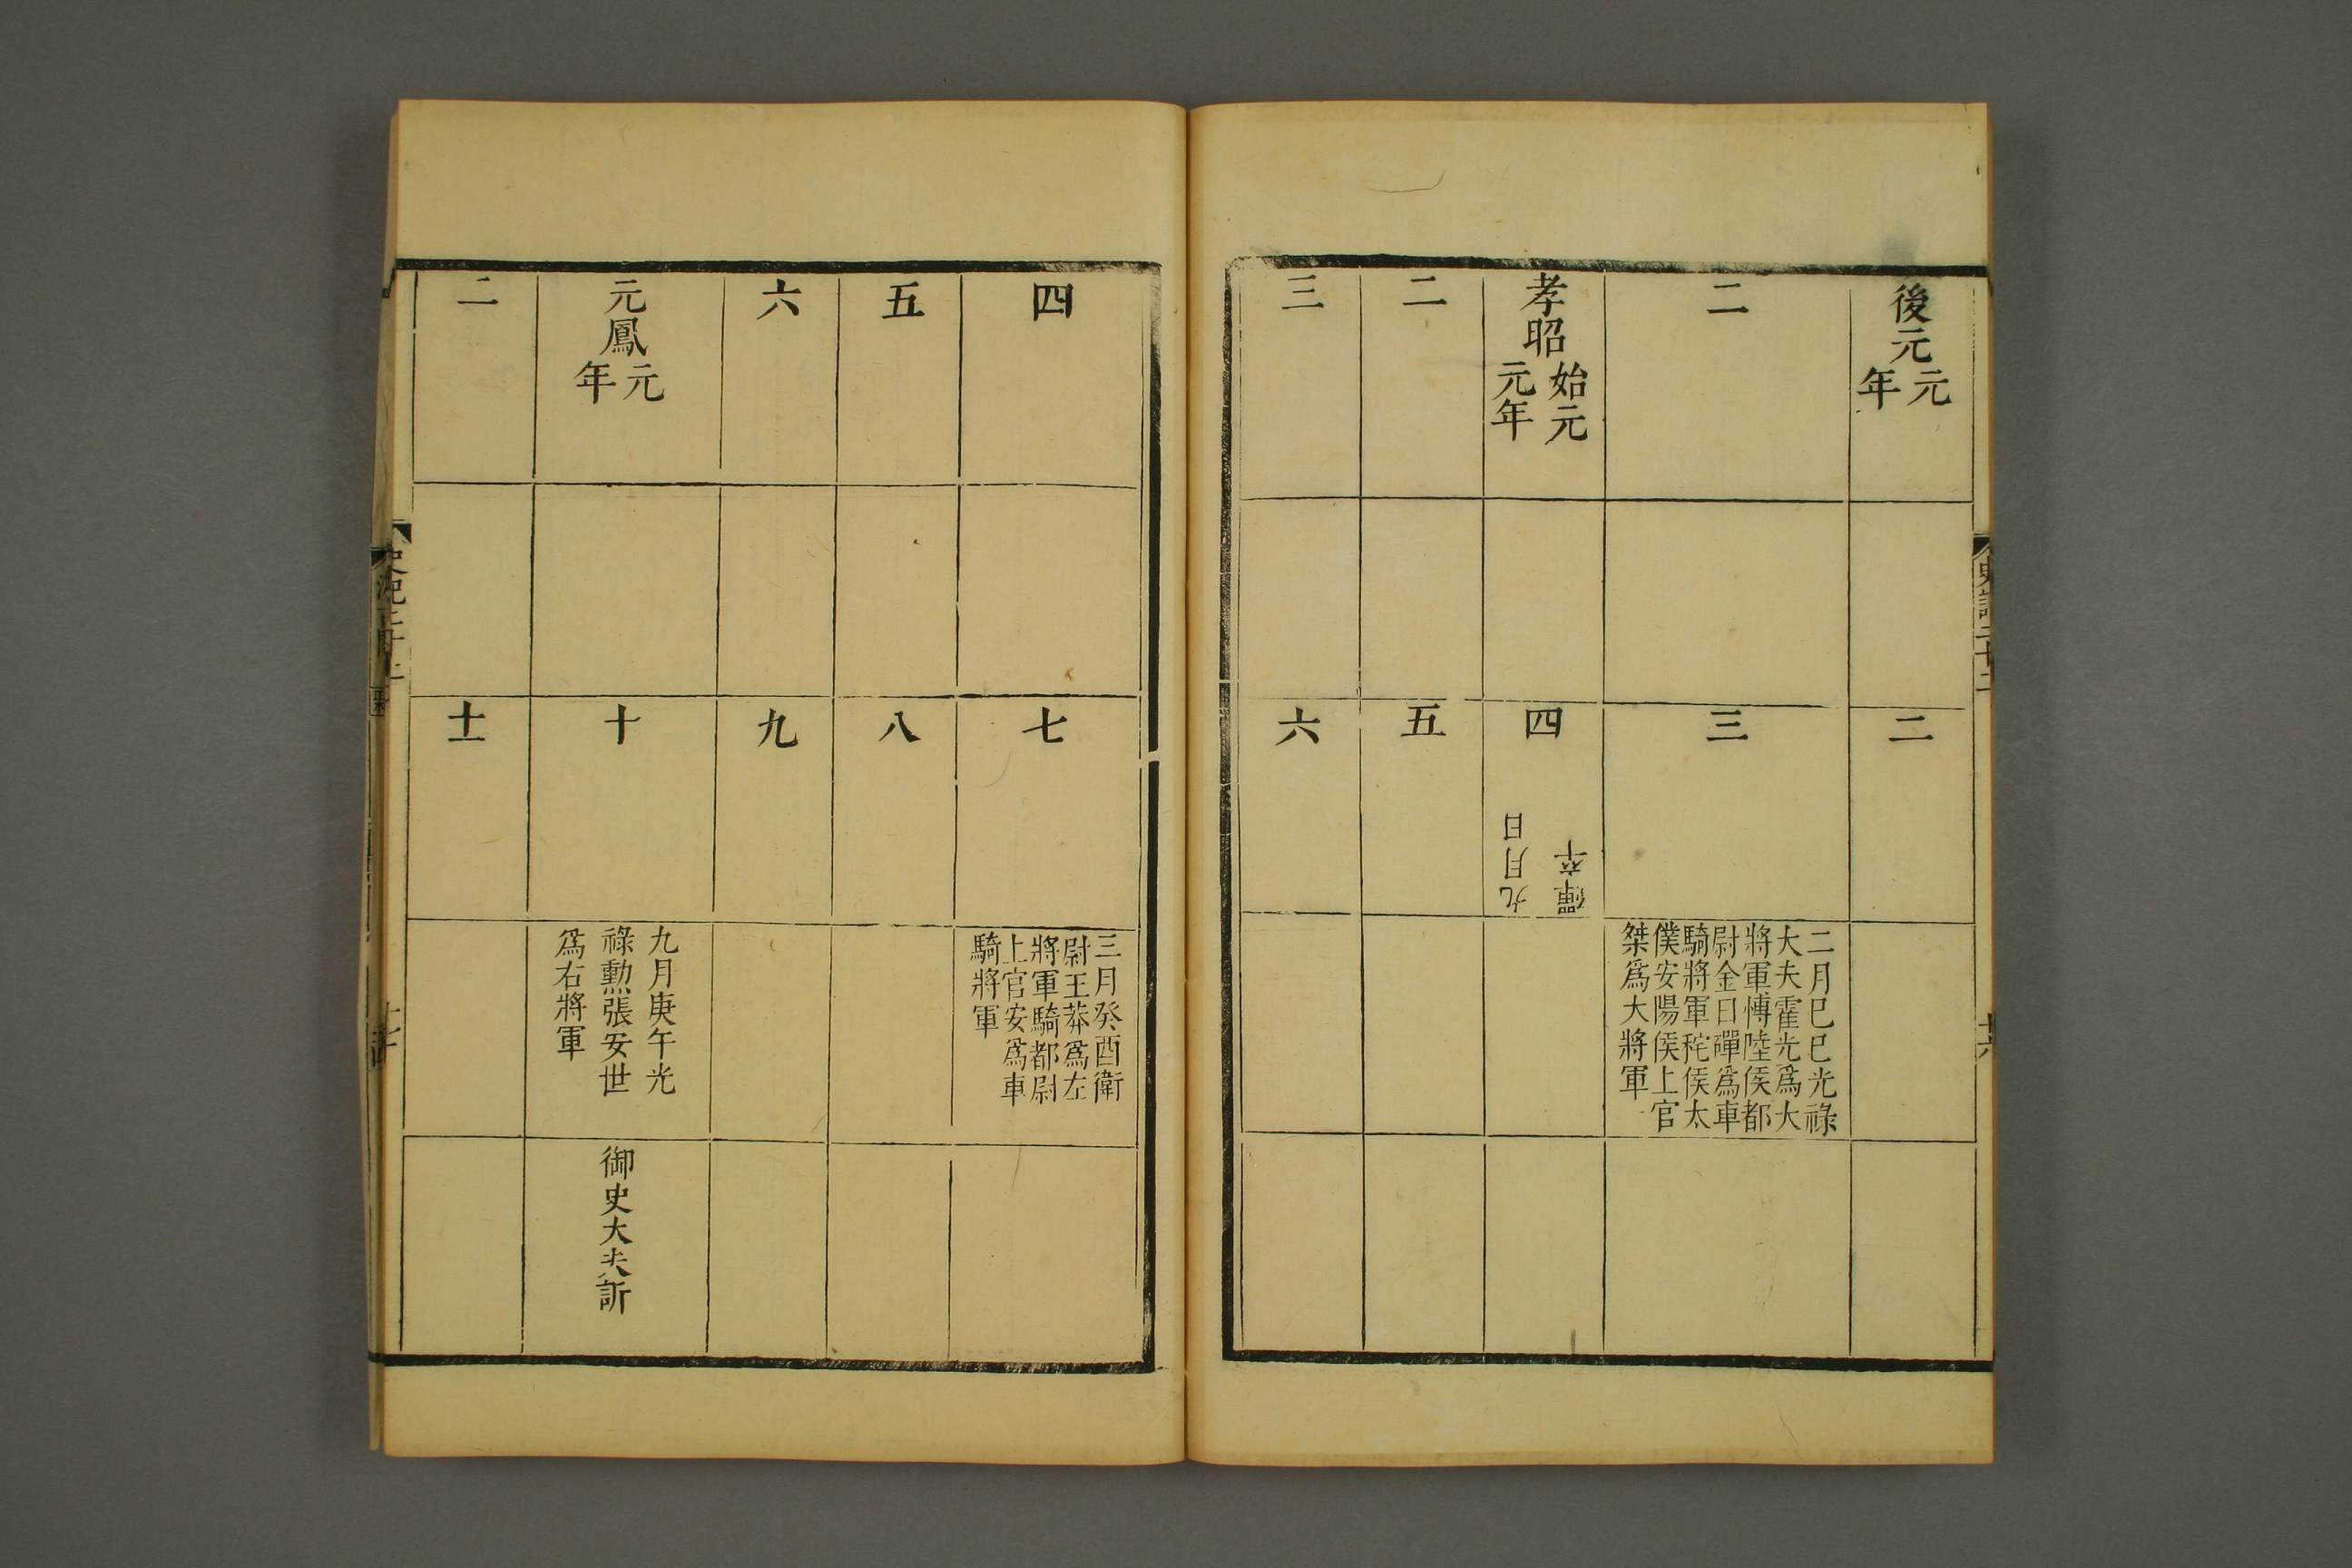 後元
元
年
二
二
三
二月巳巳光祿
大夫霍光爲大
將軍愽陸侯都
尉金日磾爲車
騎將軍秺侯太
僕安陽侯上官
桀爲大將軍
孝昭
始元
元年
四
磾卒
九月日
二
五
三
六
四
七
三月癸酉衛
尉王莽爲左
將軍騎都尉
上官安爲車
騎將軍
五
八
六
九
元鳳
元
年
十
九月庚午光
祿勲張安世
爲右將軍
御史大夫訢
二
十一